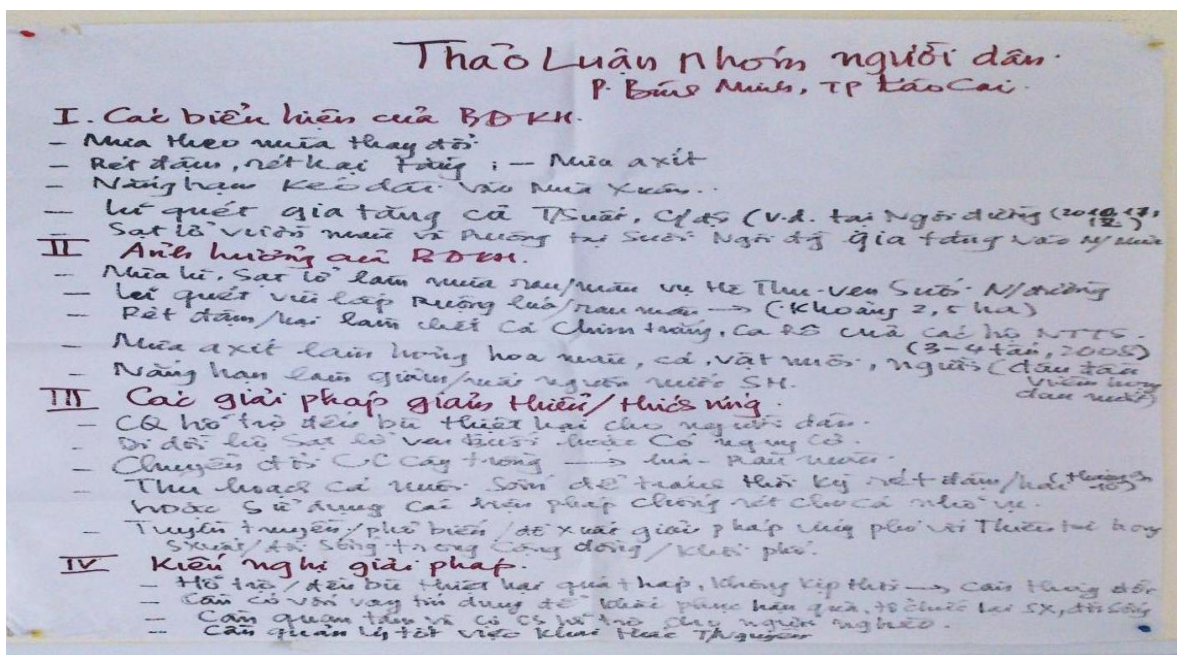 Thảo Luận nhóm người dân.
P. Bình Minh, TP Lào Cai.
I. Các biểu hiện của BĐKH.
- Mưa theo mùa thay đổi
- Rét đậm, rét hại tăng ; - Mưa axít
- Nắng hạn kéo dài vào Mùa Xuân..
- Lũ quét gia tăng cả T/Suất, C/độ (v.d. tại Ngòi đường
- Sạt lở vườn màu và Ruộng tại Suối Ngòi đg gia tăng vào M/mưa
II Ảnh hưởng của BĐKH.
- Mưa lũ, Sạt lở làm mưa rau/màu vụ Hè Thu-ven Suối N/đường
- Lũ quét vùi lấp Ruộng lúa/rau màu → (Khoảng 2,5 ha)
- Rét đậm/hại làm chết Cá Chim trắng, Ca Rô của các hộ NTTS.
(3-4 tấn, 2008)
- Mưa axít làm hỏng hoa màu, cá, vật nuôi, người (đau
- Nắng hạn làm giảm/mất nguồn nước SH.
III Các giải pháp giảm thiểu/thích ứng.
- CQ hỗ trợ đền bù thiệt hại cho người dân.
- Di dời hộ Sạt lở ven Suối hoặc Có nguy cơ.
- Chuyển đổi CC cây trồng → lúa - Rau màu.
- Thu hoạch cá nuôi Sớm để tránh thời kỳ rét đậm/hại
hoặc Sử dụng các biện pháp chống rét cho cá nhỏ vụ.
- Tuyên truyền/phổ biến/đề xuất giải pháp ứng phó với Thiên tai trong
SXuất/đời Sống trong Cộng đồng/khối phố.
IV Kiến nghị giải pháp.
- Hỗ trợ/đền bù thiệt hại quá thấp, không kịp thời → cần thay đổi.
- Cần có vốn vay tín dụng để khắc phục hậu quả, tổ chức lại SX, đời Sống
- Cần quan tâm và có CS hỗ trợ cho người nghèo.
- Cần quản lý tốt việc khai thác T/Nguyên